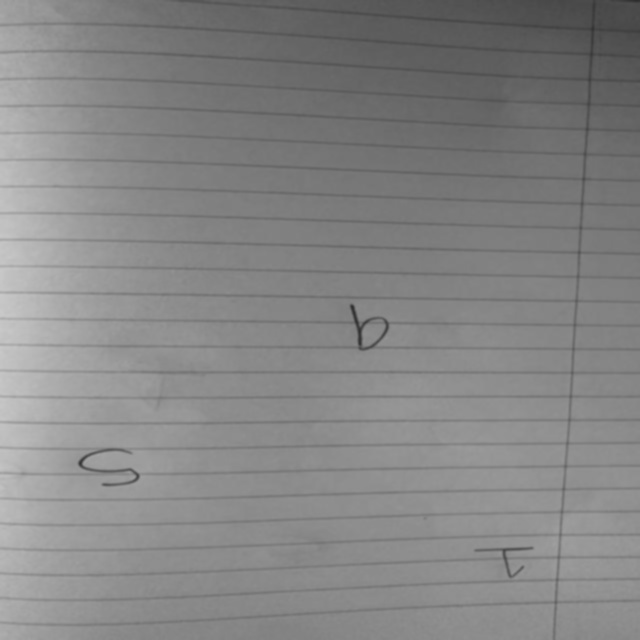 b
S
t